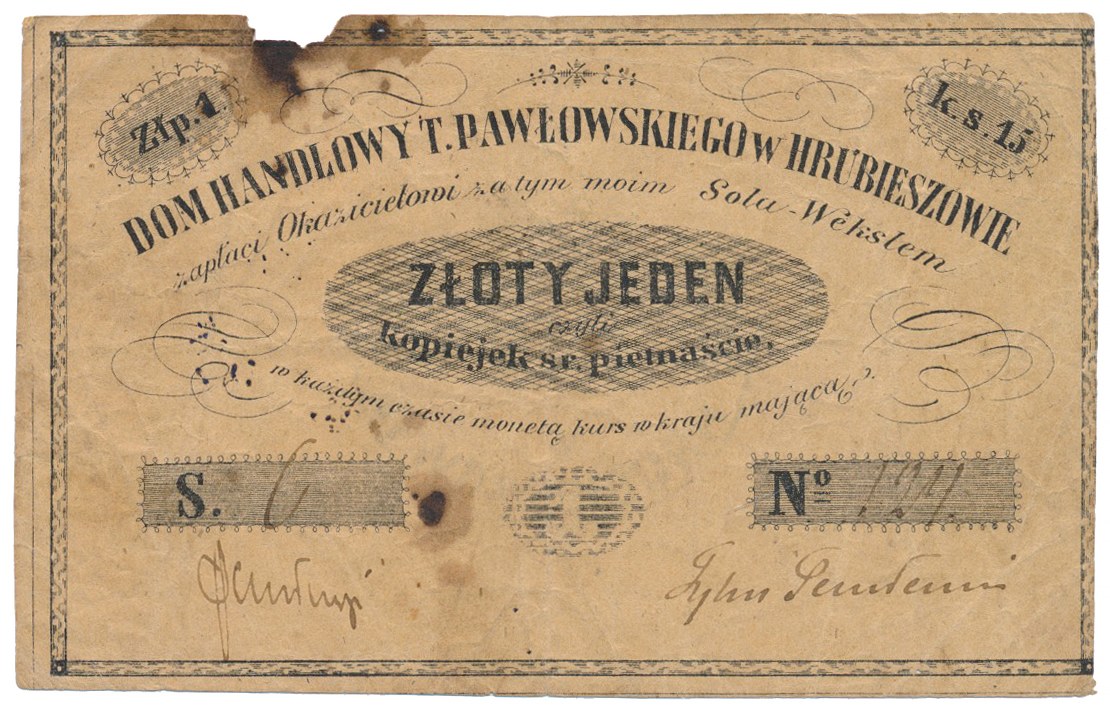 Złp. 1.
k. s. 15
DOM HANDLOWY T. PAWŁOWSKIEGO w HRUBIESZOWIE
zapłaci Okazicielowi za tym moim Sola-Wekslem
ZŁOTY JEDEN
czyli
kopiejek sr. pietnaście,
w każdym czasie monetą kurs w kraju mającą.
S. 6
1
Nº 124.